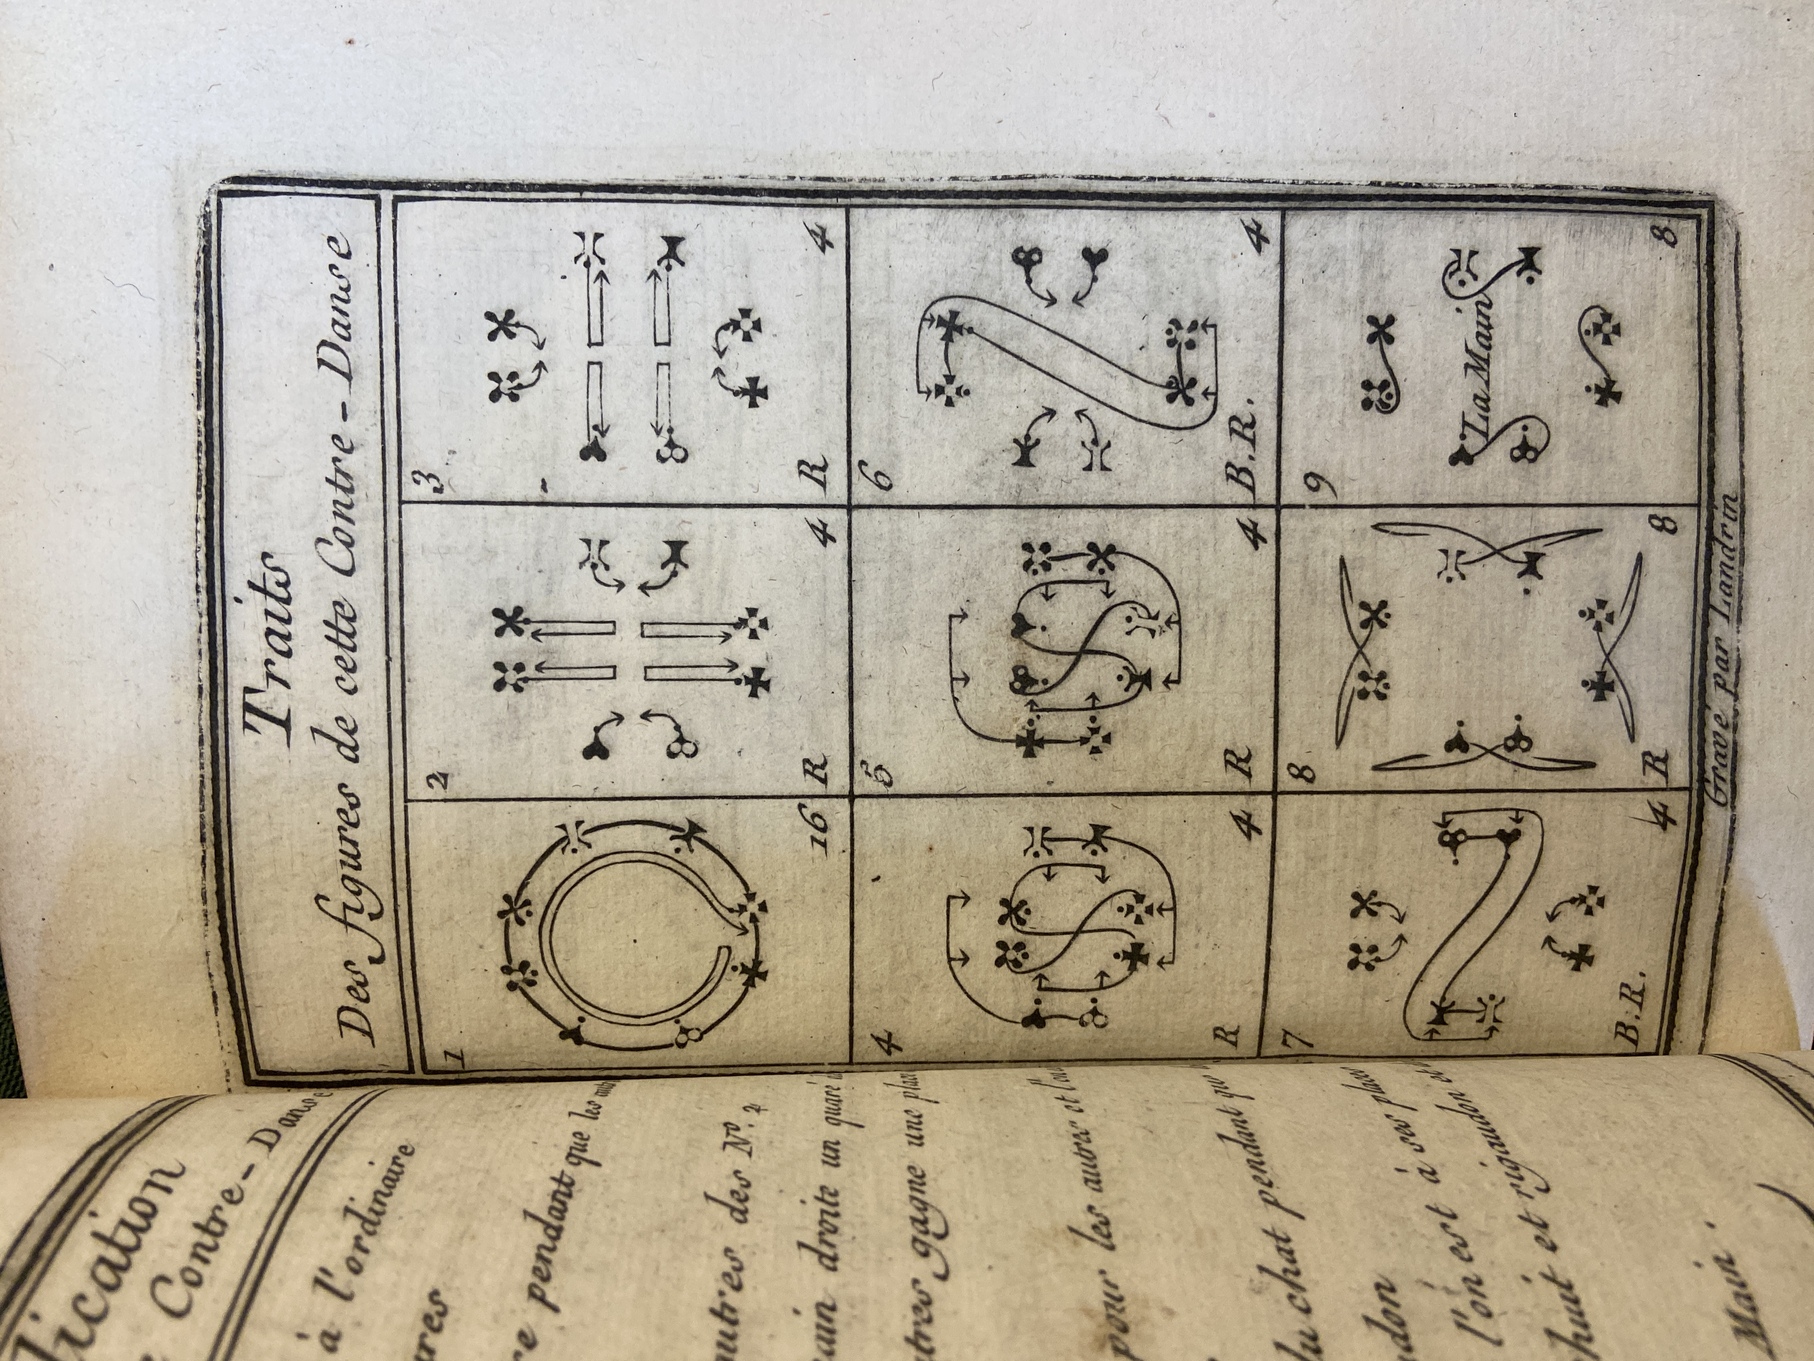 Traits
Des figures de cette Contre-Danse
1
16
2
R
4
3
R
4
4
R
4
5
R
4
6
B.R.
4
7
B.R.
4
8
R
8
9
La Main
8
Gravé par Landrin
Contre-Danse
à l'ordinaire
pendant que les
autres des Nº. 2
main droite un quaré
autres gagne une place
pour les autres et
du chat pendant que
l'on est à ses places
huit et rigaudon
Main.